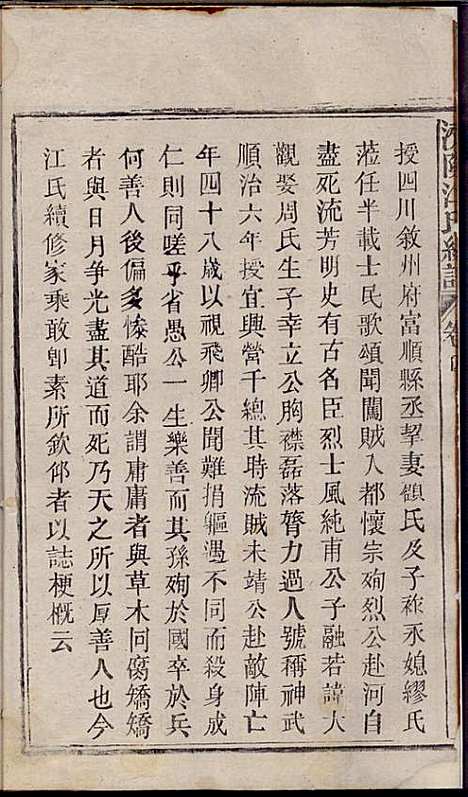 濟陽江氏統譜 卷
授四川敘州府富順縣丞挈妻顧氏及子祚永媳繆氏
蒞任半載士民歌頌聞闖賊入都懷宗殉烈公赴河自
盡死流芳明史有古名臣烈士風純甫公子融若諱大
觀娶周氏生子幸立公胸襟磊落膂力過人號稱神武
順治六年授宜興營千總其時流賊未靖公赴敵陣亡
年四十八歲以視飛卿公聞難捐軀遇不同而殺身成
仁則同嗟乎省愚公一生樂善而其孫殉於國卒於兵
何善人後偏多慘酷耶余謂庸庸者與草木同腐矯矯
者與日月争光盡其道而死乃天之所以厚善人也今
江氏續修家乘敢卽素所欽仰者以誌梗概云